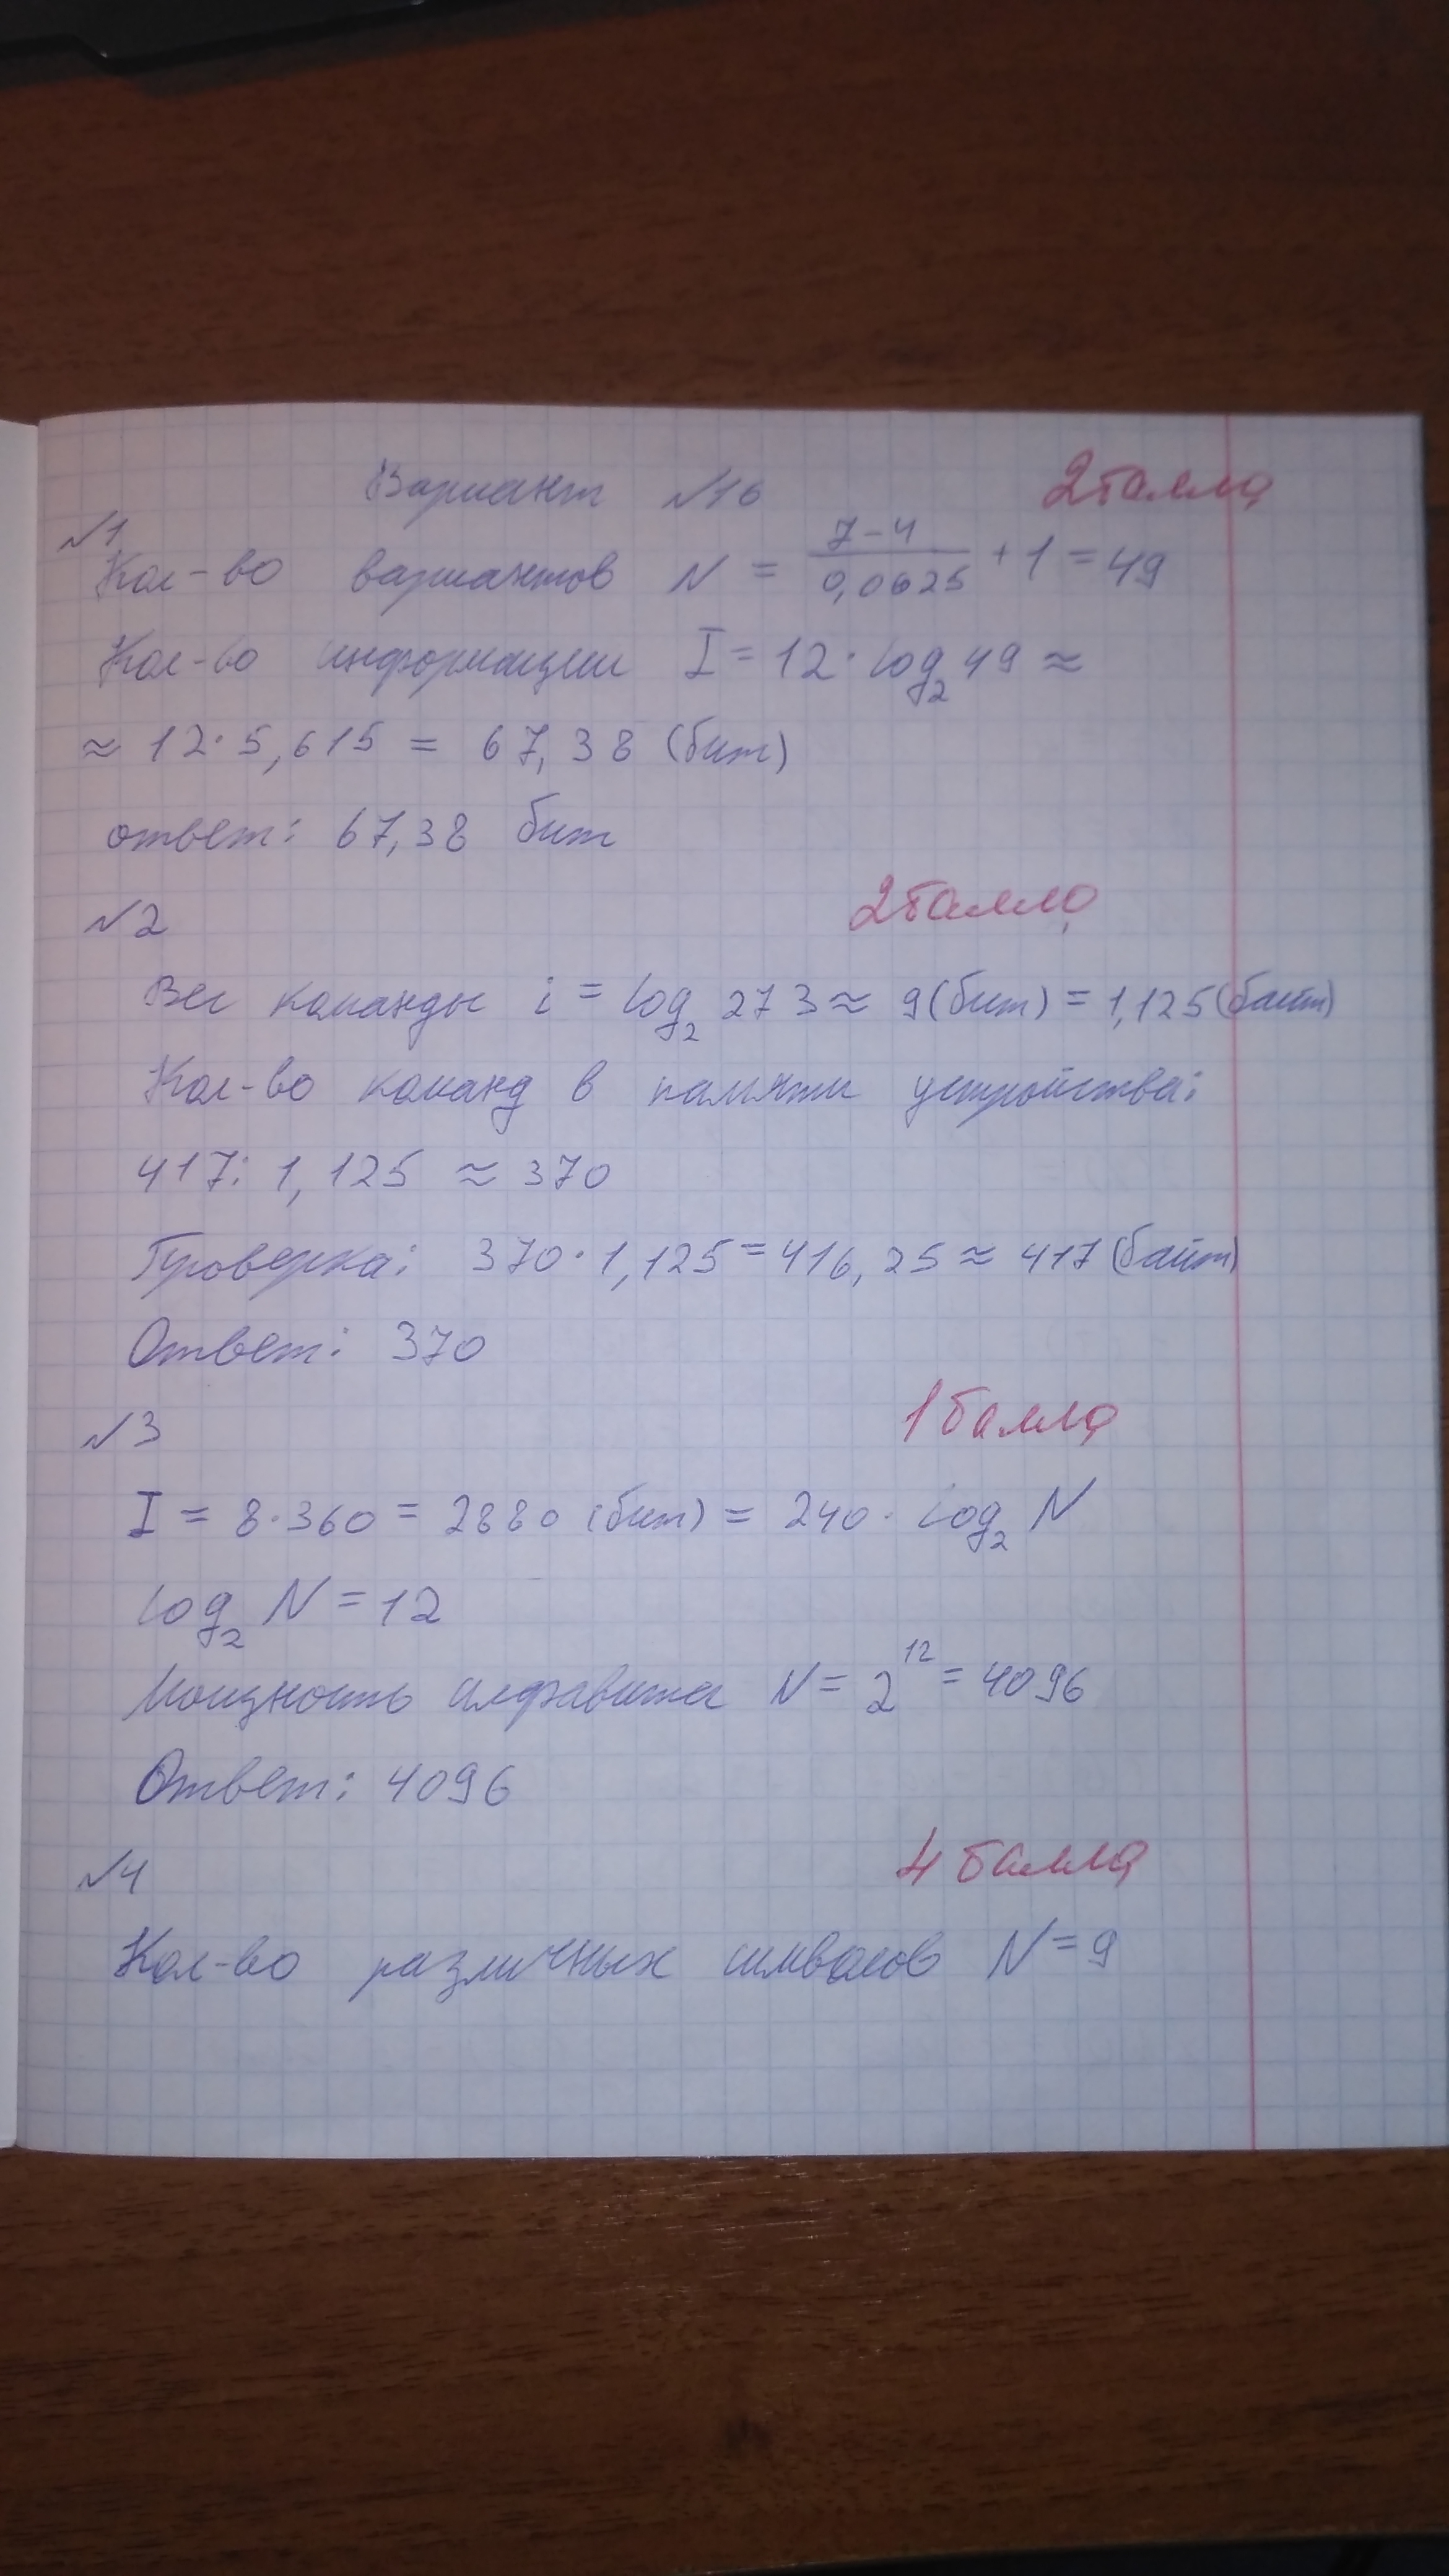 Вариант №16 2 балла
№1
Кол-во вариантов N = 7-4/0,0625 + 1 = 49
Кол-во информации I = 12 · log₂ 49 ≈
≈ 12 · 5,615 = 67,38 (бит)
ответ: 67,38 бит
№2 2 балла
Вес команды i = log₂ 273 ≈ 9 (бит) = 1,125 (байт)
Кол-во команд в памяти устройства:
417 : 1,125 ≈ 370
Проверка: 370 · 1,125 = 416,25 ≈ 417 (байт)
Ответ: 370
№3 1 балла
I = 8 · 360 = 2880 (бит) = 240 · log₂ N
log₂ N = 12
Мощность алфавита N = 2¹² = 4096
Ответ: 4096
№4 4 балла
Кол-во различных символов N = 9